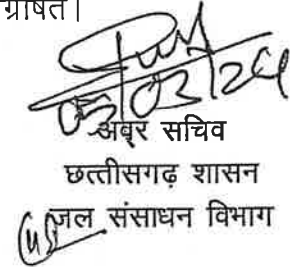 ग्रेषित।
अवर सचिव
छत्तीसगढ़ शासन
जल संसाधन विभाग